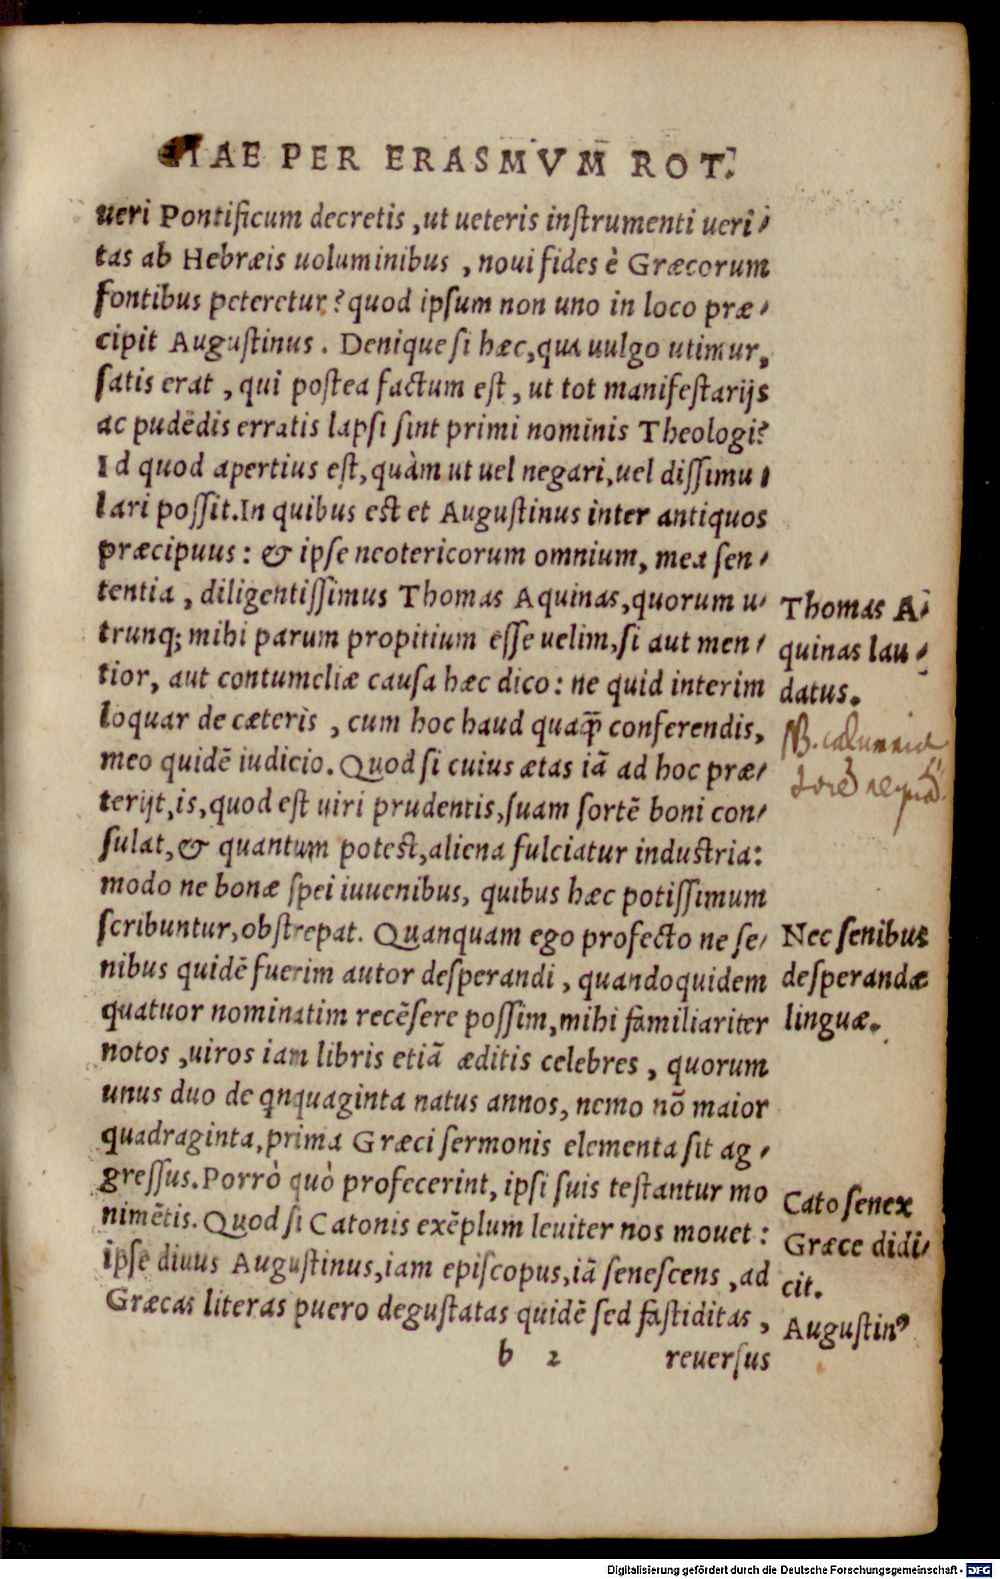 IAE PER ERASMVM ROT.
ueri Pontificum decretis, ut ueteris instrumenti ueri-
tas ab Hebræis uoluminibus, noui fides è Græcorum
fontibus peteretur? quod ipsum non uno in loco præ-
cipit Augustinus. Denique si hæc, qua uulgo utimur,
satis erat, quî postea factum est, ut tot manifestarijs
ac pudēdis erratis lapsi sint primi nominis Theologi?
Id quod apertius est, quàm ut uel negari, uel dissimu-
lari possit. In quibus est et Augustinus inter antiquos
præcipuus: & ipse neotericorum omnium, mea sen-
tentia, diligentissimus Thomas Aquinas, quorum u-
trunq; mihi parum propitium esse uelim, si aut men-
tior, aut contumeliæ causa hæc dico: ne quid interim
loquar de cæteris, cum hoc haud quaq̃ conferendis,
meo quidē iudicio. Quod si cuius ætas iā ad hoc præ-
terijt, is, quod est uiri prudentis, suam sortē boni con-
sulat, & quantum potest, aliena fulciatur industria:
modo ne bonæ spei iuuenibus, quibus hæc potissimum
scribuntur, obstrepat. Quanquam ego profecto ne se-
nibus quidē fuerim autor desperandi, quandoquidem
quatuor nominatim recēsere possim, mihi familiariter
notos, uiros iam libris etiā æditis celebres, quorum
unus duo de qnquaginta natus annos, nemo nō maior
quadraginta, prima Græci sermonis elementa sit ag-
gressus. Porrò quò profecerint, ipsi suis testantur mo
nimētis. Quod si Catonis exēplum leuiter nos mouet:
ipse diuus Augustinus, iam episcopus, iā senescens, ad
Græcas literas puero degustatas quidē sed fastiditas,
b 2 reuersus
Thomas A-
quinas lau-
datus.
NB.
Nec senibus
desperandæ
linguæ.
Cato senex
Græce didi-
cit.
Augustinꝰ
Digitalisierung gefördert durch die Deutsche Forschungsgemeinschaft - DFG